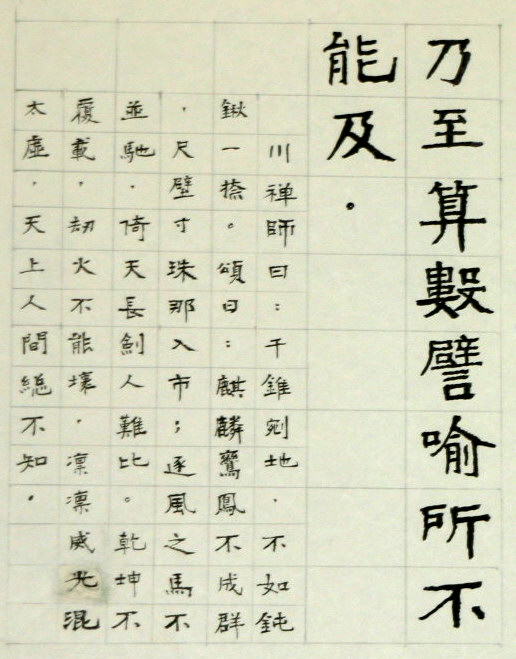 乃至算數譬喻所不
能及。
川禅師曰：千錐剜地，不如鈍
鍬一捺。頌曰：麒麟鸞鳳不成群
，尺璧寸珠那入市；逐風之馬不
並馳，倚天長劍人難比。乾坤不
覆載，劫火不能壞，凜凜威光混
太虛，天上人間總不知。